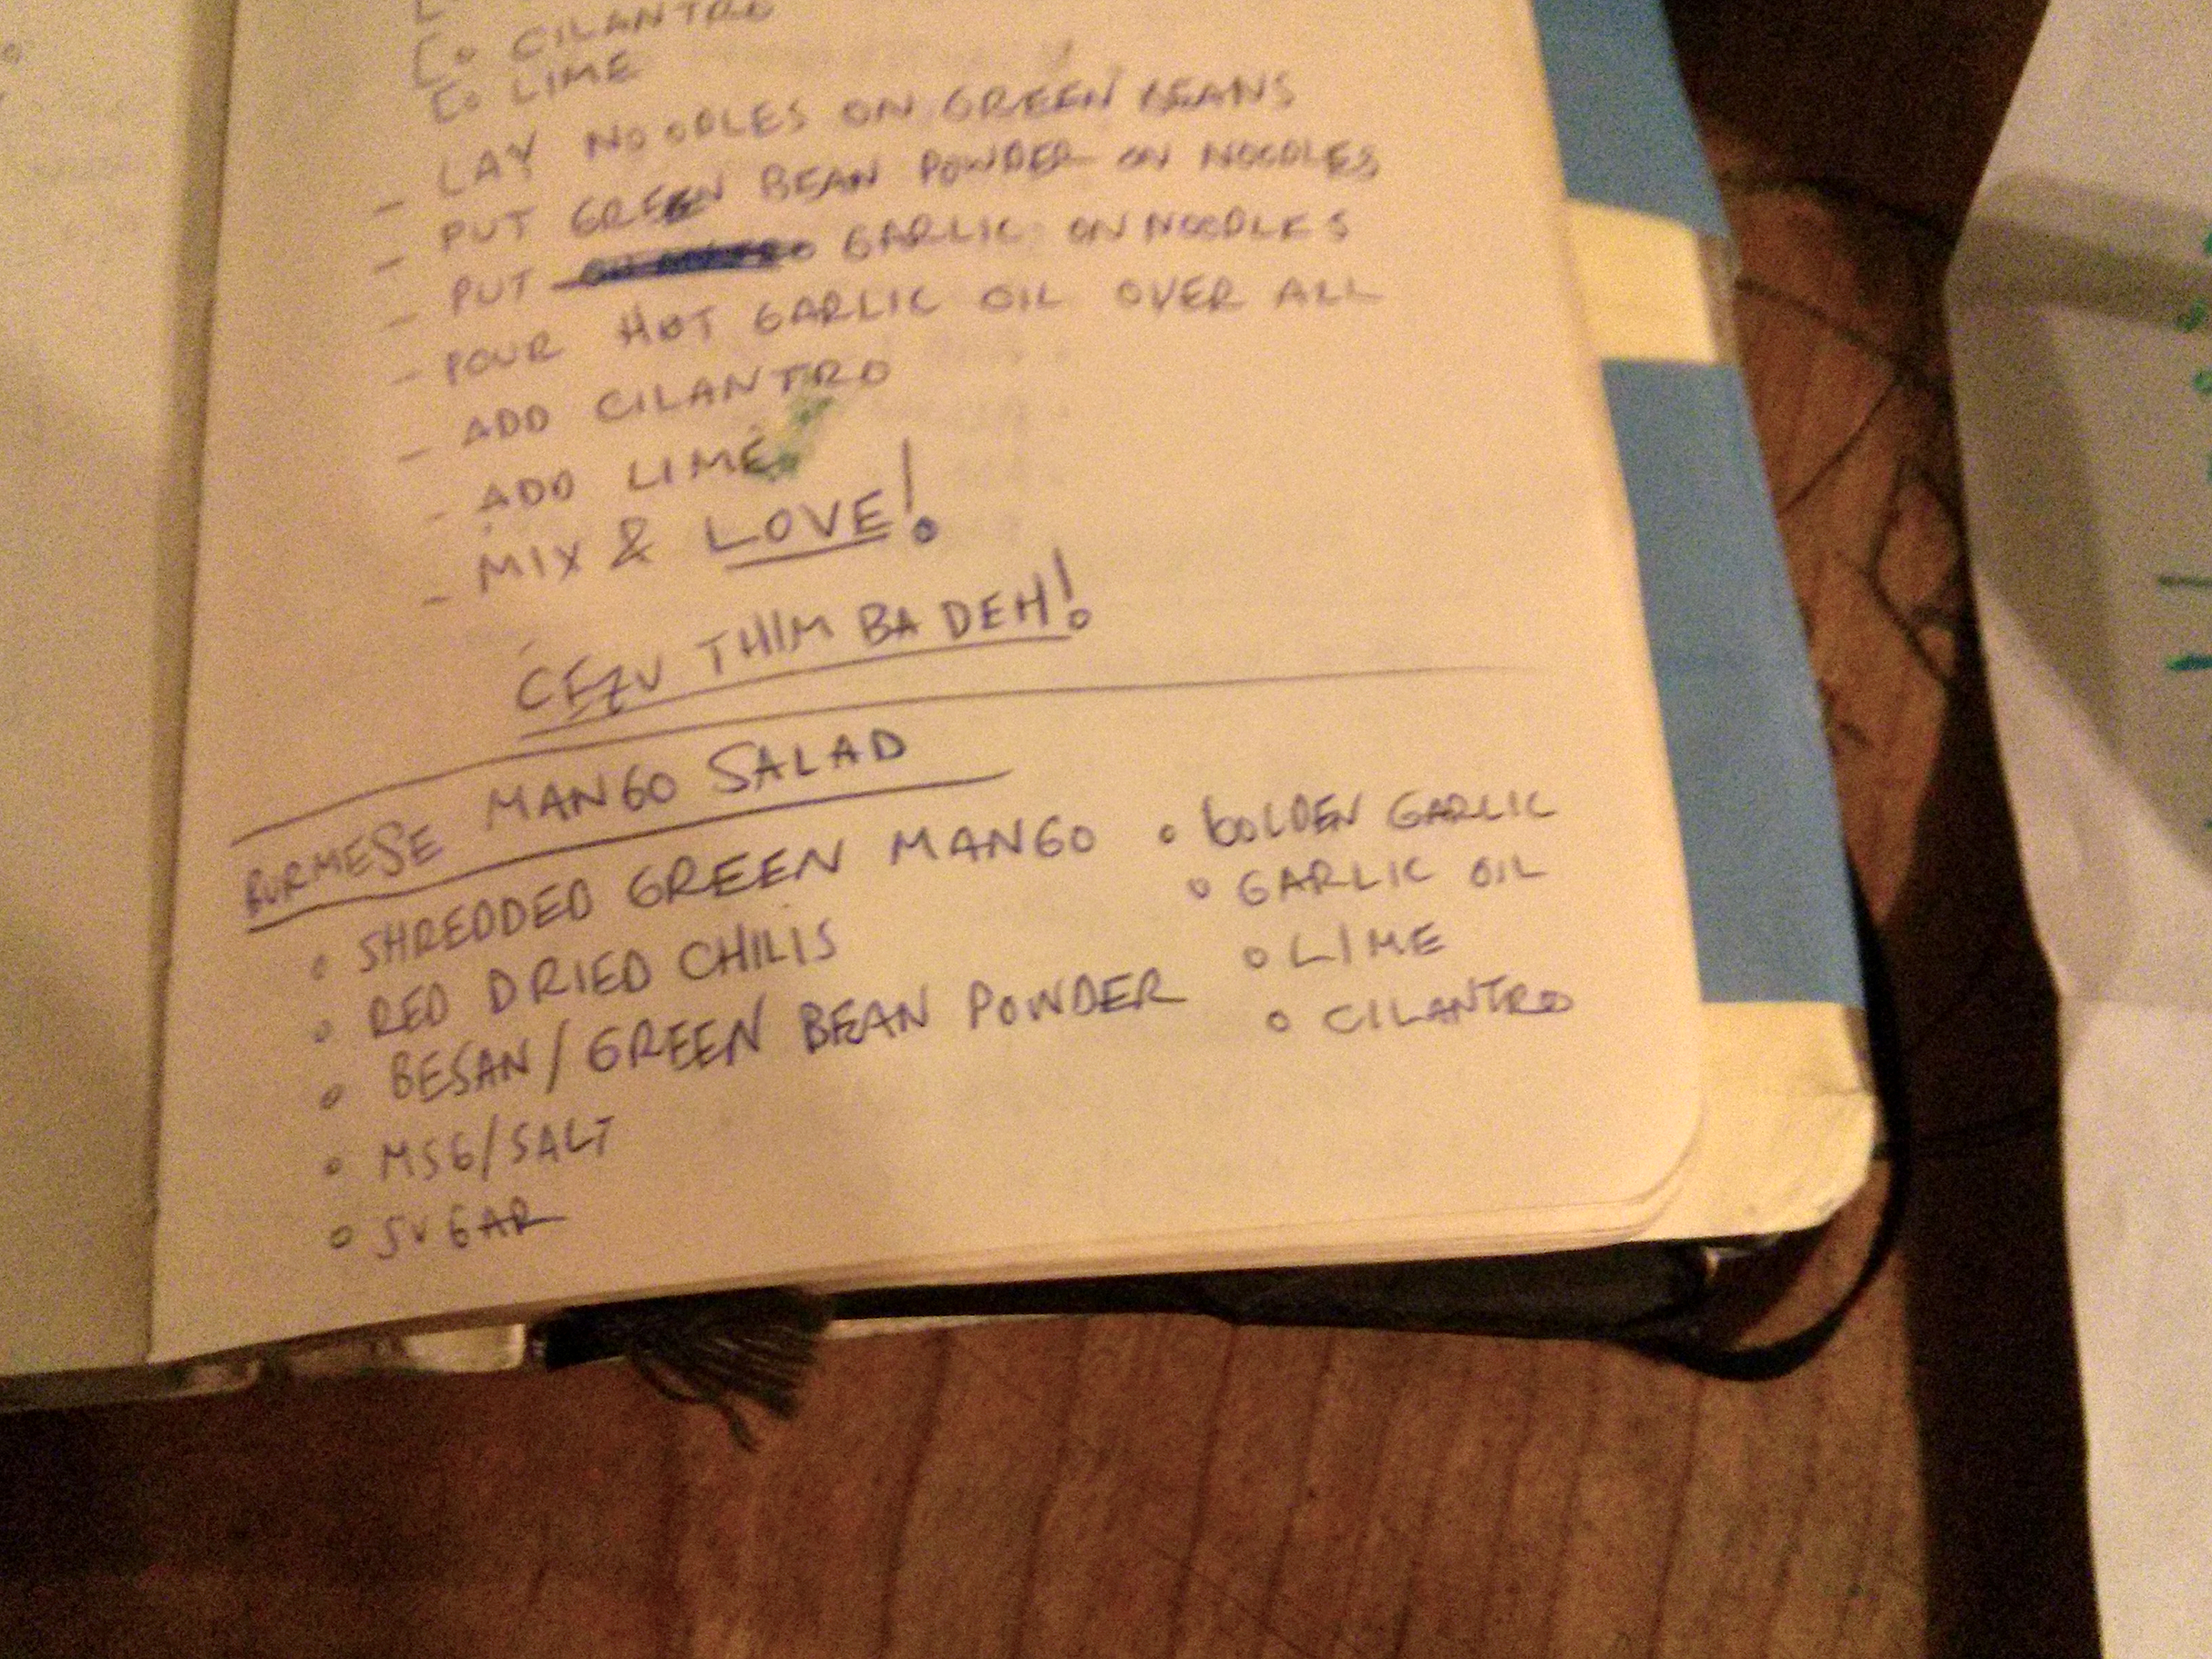 CILANTRO
LIME
- LAY NOODLES ON GREEN BEANS
- PUT GREEN BEAN POWDER ON NOODLES
- PUT GARLIC ON NOODLES
- POUR HOT GARLIC OIL OVER ALL
- ADD CILANTRO
- ADD LIME
- MIX & LOVE!
CEZU THIM BA DEH!
BURMESE MANGO SALAD
° SHREDDED GREEN MANGO
° RED DRIED CHILIS
° BESAN/GREEN BEAN POWDER
° MSG/SALT
° SUGAR
° GOLDEN GARLIC
° GARLIC OIL
° LIME
° CILANTRO